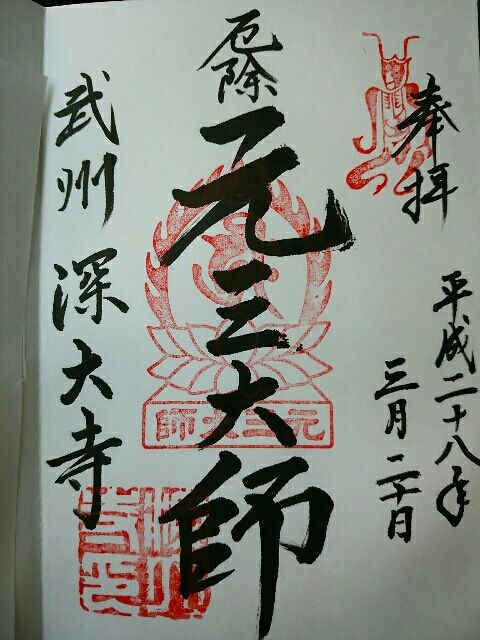 奉拝
平成二十八年
三月二十日
厄除
元三大師
師大三元
武州 深大寺